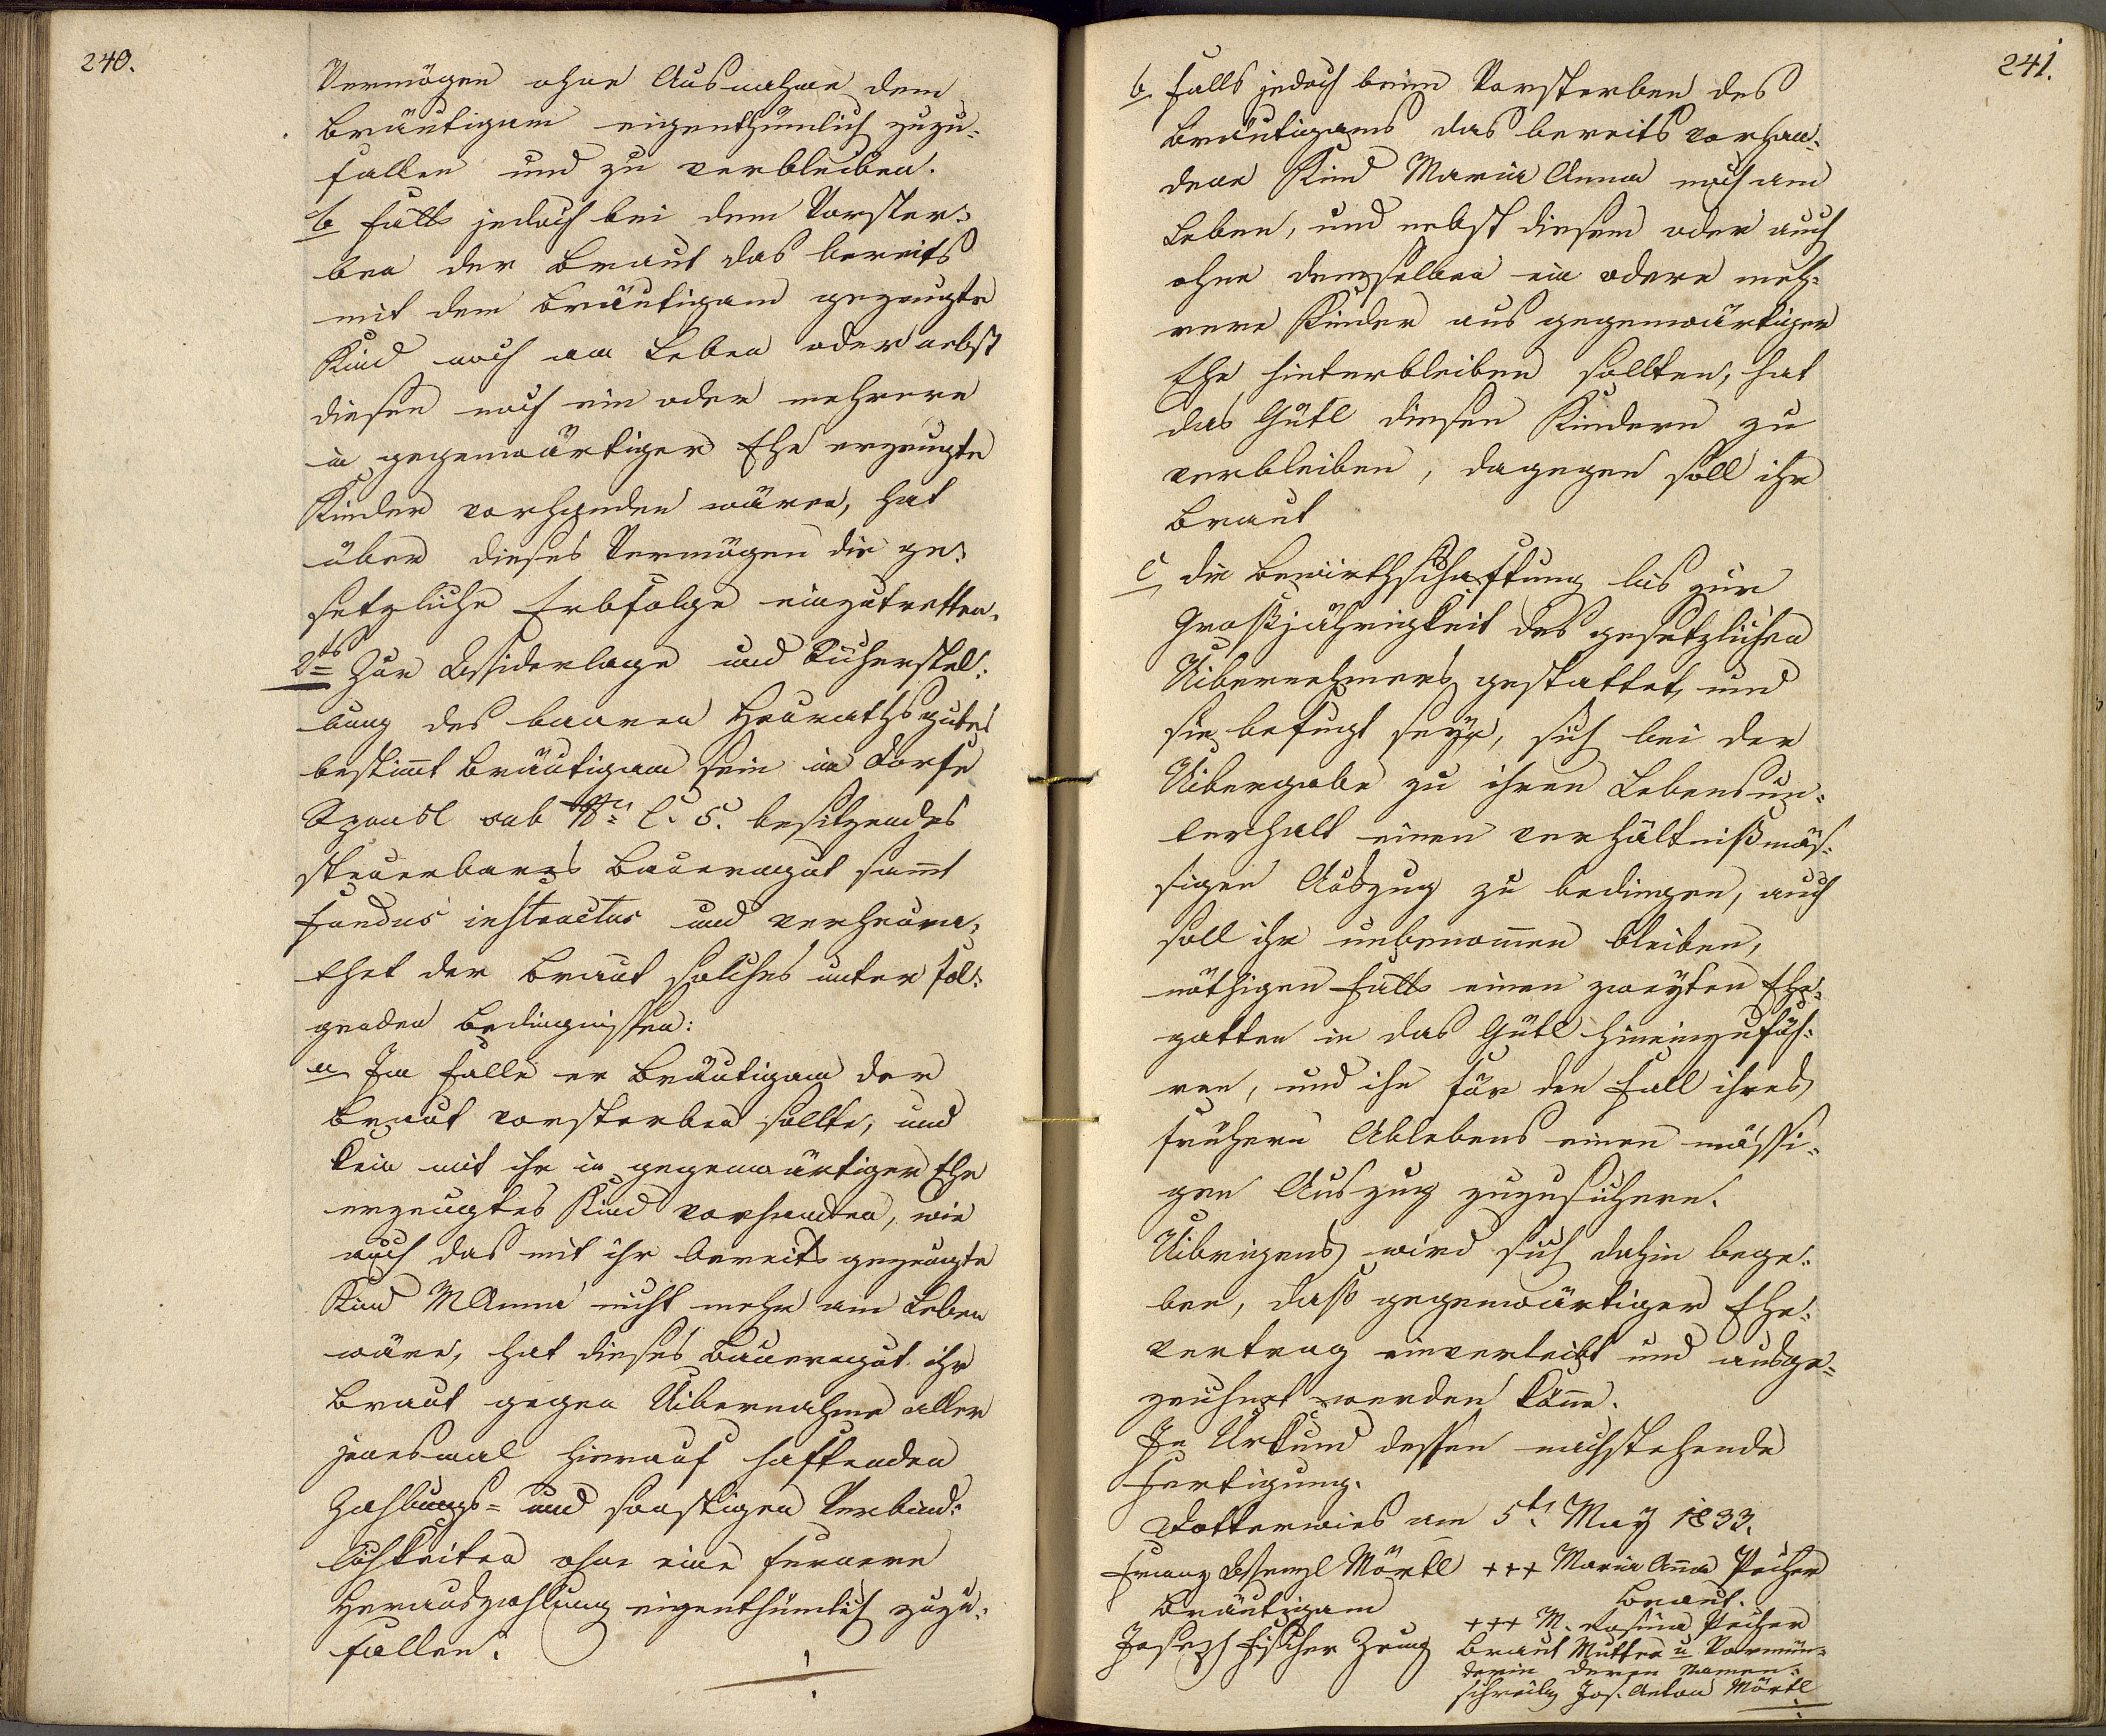 240.
Vermögen ohne Ausnahme dem
Bräutigam eigenthümlich zuzu=
fallen und zu verbleiben.
b Falls jedoch bei dem Vorster=
ben der Braut das bereits
mit dem Bräutigam gezeugte
Kind noch am Leben oder nebst
diesen noch ein oder mehrere
in gegenwärtiger Ehe erzeugte
Kinder vorhanden wären, hat
über dieses Vermögen die ge=
setzliche Erbfolge einzutretten.
2tens Zur Widerlage und Sicherstel=
lung des baaren Heurathsgutes
bestimt Bräutigam sein im Dorfe
sub No C. 5. besitzendes
steuerbares Bauerngut samt
fundus instructus und verheura=
thet der Braut solches unter fol=
genden Bedingnissen:
a Im Falle er Bräutigam der
Braut vorsterben sollte, und
kein mit ihr in gegenwärtiger Ehe
erzeugtes Kind vorhanden, wie
auch das mit ihr bereits gezeugte
Kind M Anna nicht mehr am Leben
wäre, hat dieses Bauerngut ihr
Braut gegen Uibernahme aller
jenesmal hierauf haftenden
Zahlungs= und sonstigen Verbind=
lichkeiten ohne eine fernere
Herauszahlung eigenthümlich zuzu=
fallen.
241.
b. Falls jedoch beim Vorsterben des
Bräutigams das bereits vorhan=
dene Kind Maria Anna noch am
Leben, und nebst diesem oder auch
ohne demselben ein odere meh=
rere Kinder aus gegenwärtiger
Ehe hinterbleiben sollten, hat
das Gütl diesen Kindern zu
verbleiben, dagegen soll ihr
Braut
c die Bewirthschaftung bis zur
Großjährigkeit des gesetzlichen
Uibernehmers gestattet, und
sie befugt seyn, sich bei der
Uibergabe zu ihren Lebensun=
terhalt einen verhältnißmäs=
sigen Auszug zu bedingen, auch
soll ihr unbenomen bleiben,
nöthigen Falls einen zweyten Ehe=
gatten in das Gütl hineinzufüh=
ren, und ihn für den Fall ihres
frühern Ablebens einen mässi=
gen Auszug zuzusichern.
Uibrigens wird sich dahin bege=
ben, daß gegenwärtiger Ehe=
vertrag einverleibt und ausge=
zeichnet werden köne.
In Urkund dessen nachstehende
Fertigung.
Dotterwies am 5t. May 1833.
Franz Wenzl Mörtl +++ Maria Ana Pecher
Bräutigam Braut.
+++ M. Rosina Pecher
Joseph Fischer Zeug Braut Mutter u Vormün=
derin deren Namen=
schreiber Jos. Anton Mörtl